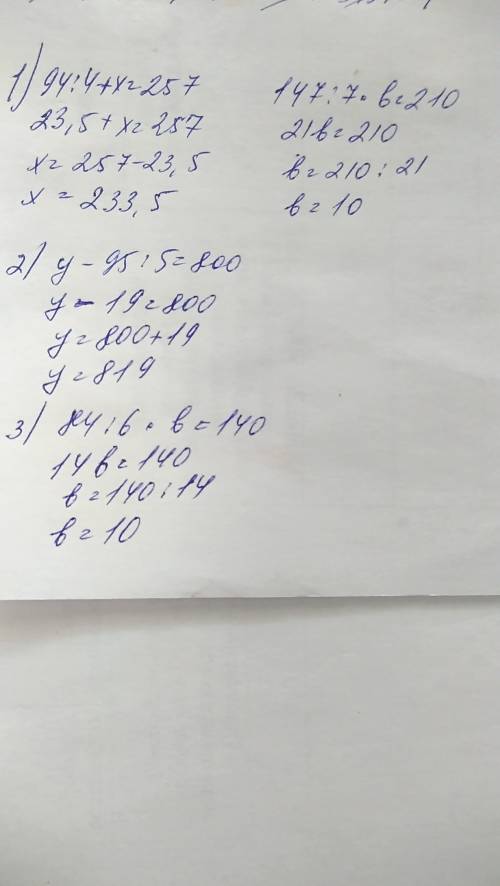 1) 94:4+x=257
23,5+x=257
x=257-23,5
x=233,5
147:7·b=210
21b=210
b=210:21
b=10
2) y-95:5=800
y-19=800
y=800+19
y=819
3) 84:6·b=140
14b=140
b=140:14
b=10